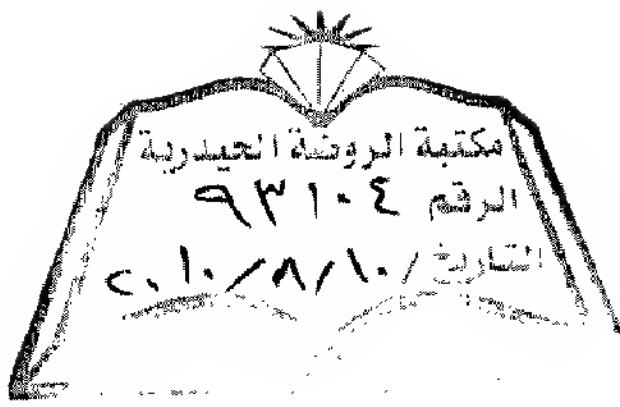 مكتبة الروضة الحيدرية
الرقم ٩٣١٠٤
التاريخ /١٠/٨/٢٠١٠